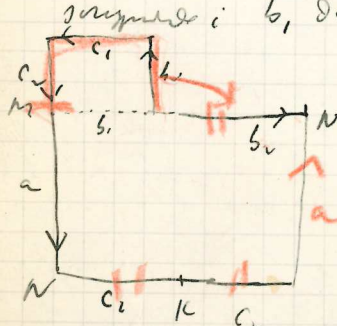 i b₁
c₁
c₂
M b₁ b₂ N
a a
N c₂ K c₁